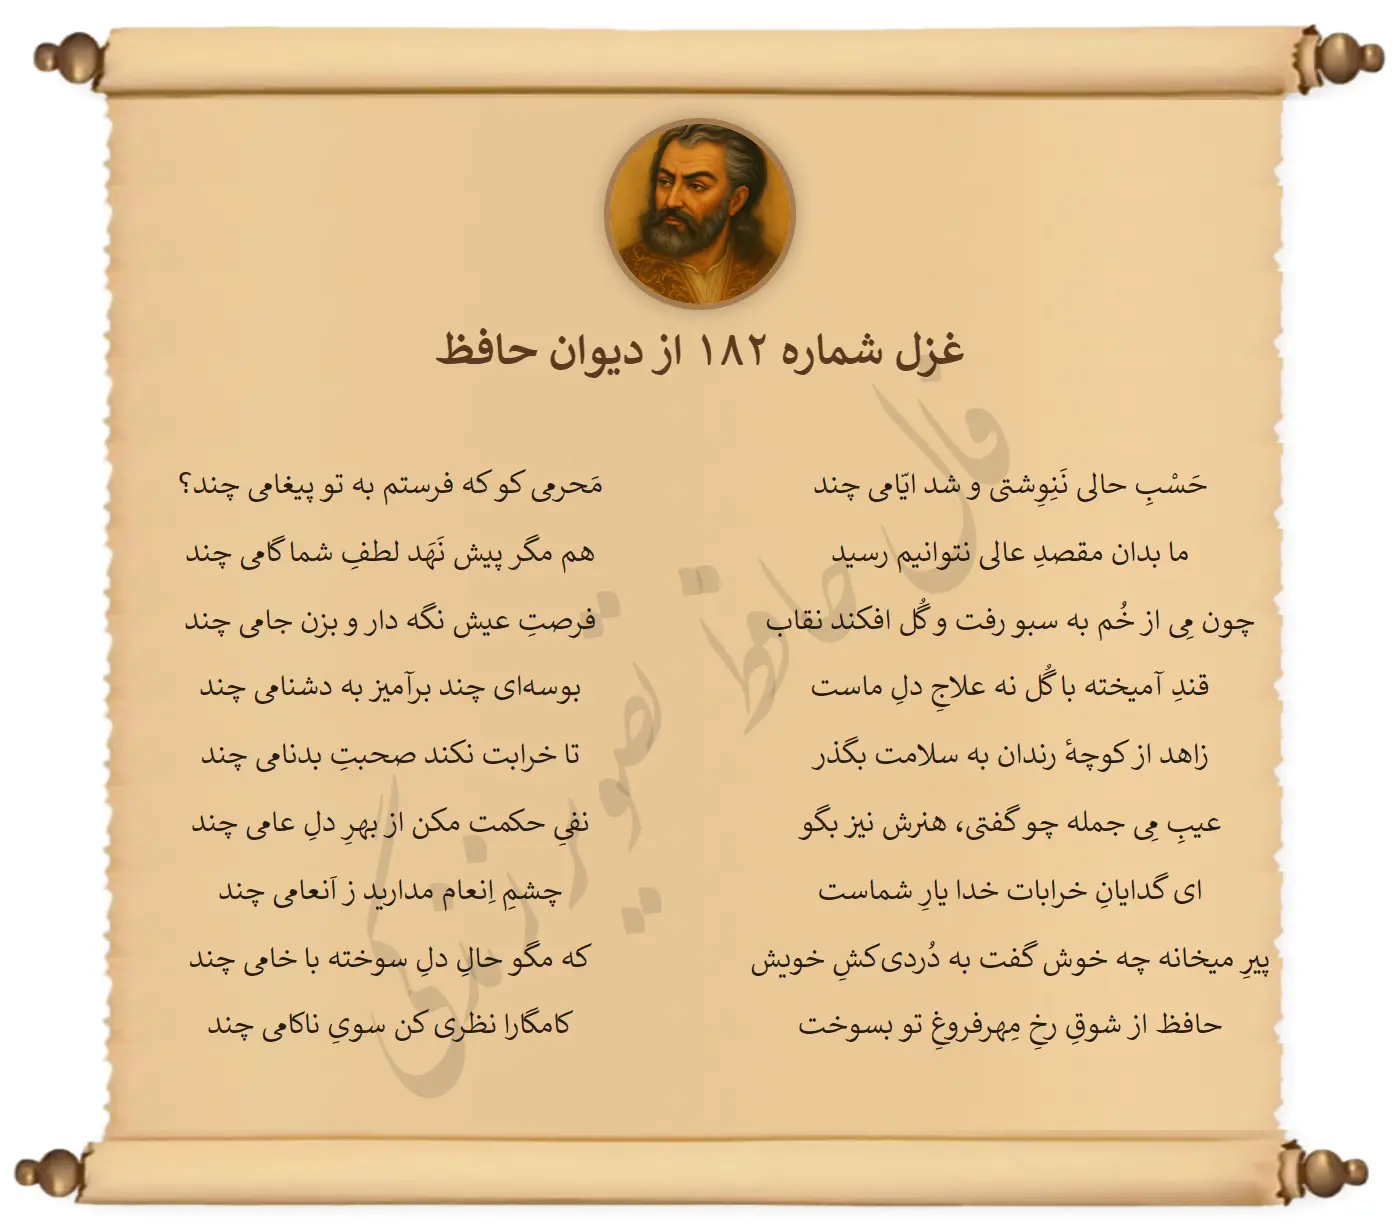 غزل شماره ۱۸۲ از دیوان حافظ
حَسْبِ حالی نَنِوِشتی و شد ایّامی چند
مَحرمی کو که فرستم به تو پیغامی چند؟
ما بدان مقصدِ عالی نتوانیم رسید
هم مگر پیش نَهَد لطفِ شما گامی چند
چون مِی از خُم به سبو رفت و گُل افکند نقاب
فرصتِ عیش نگه دار و بزن جامی چند
قندِ آمیخته با گُل نه علاجِ دلِ ماست
بوسه‌ای چند برآمیز به دشنامی چند
زاهد از کوچهٔ رندان به سلامت بگذر
تا خرابت نکند صحبتِ بدنامی چند
عیبِ مِی جمله چو گفتی، هنرش نیز بگو
نفیِ حکمت مکن از بهرِ دلِ عامی چند
ای گدایانِ خرابات خدا یارِ شماست
چشمِ اِنعام مدارید ز اَنعامی چند
پیرِ میخانه چه خوش گفت به دُردی‌کشِ خویش
که مگو حالِ دلِ سوخته با خامی چند
حافظ از شوقِ رخِ مِهرفروغِ تو بسوخت
کامگارا نظری کن سویِ ناکامی چند
فال حافظ تصویر زندگی